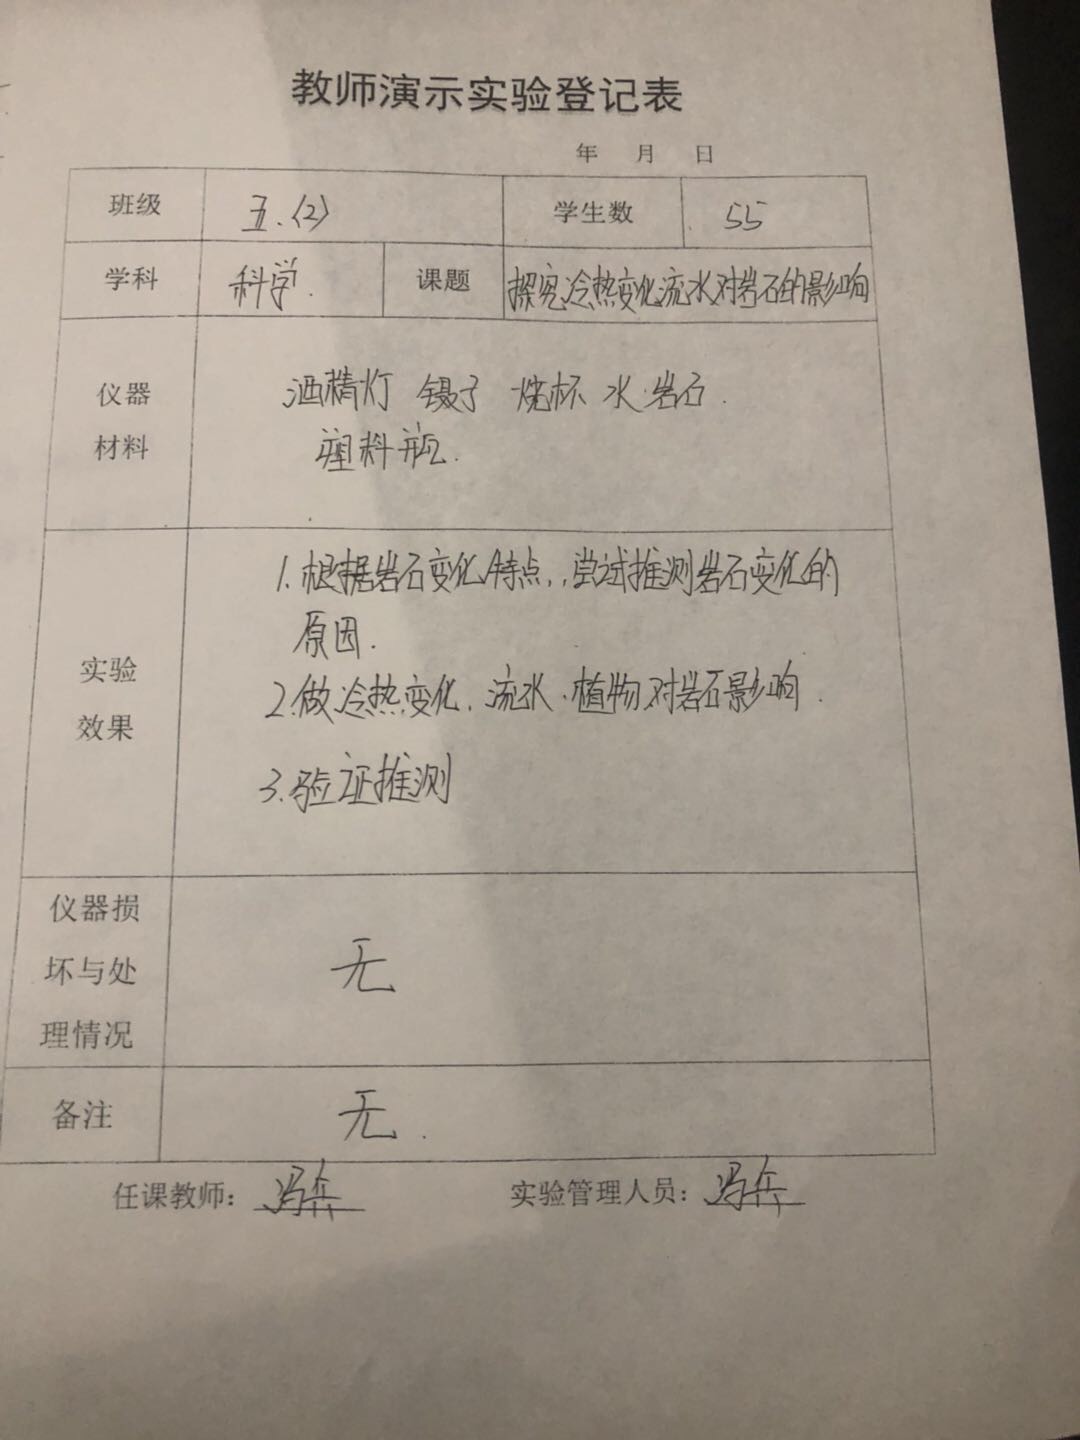 教师演示实验登记表
年 月 日
班级 五.(2) 学生数 55
学科 科学. 课题 探究冷热变化流水对岩石的影响
仪器
材料
酒精灯 镊子 烧杯 水.岩石.
塑料瓶.
实验
效果
1.根据岩石变化特点,,尝试推测岩石变化的
原因.
2.做冷热变化、流水.植物对岩石影响.
3.验证推测
仪器损
坏与处
理情况
无
备注 无.
任课教师: 冯 实验管理人员: 冯